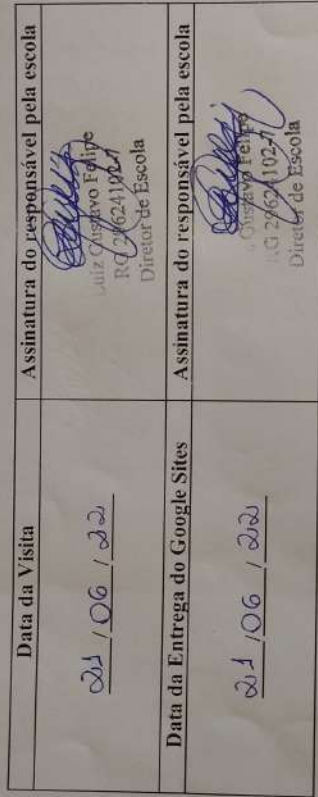 Data da Visita
Assinatura do responsável pela escola
21 / 06 / 22
Luiz Gustavo Felipe
RG 29624102-7
Diretor de Escola
Data da Entrega do Google Sites
Assinatura do responsável pela escola
21 / 06 / 22
Gustavo Felipe
RG 29624102-7
Diretor de Escola